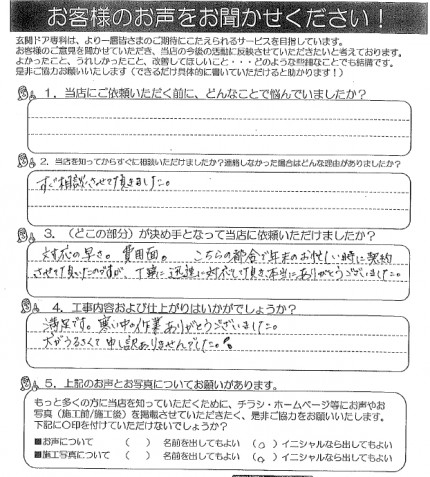 お客様のお声をお聞かせください！
玄関ドア専科は、より一層皆さまのご期待にこたえられるサービスを目指しています。
お客様のご意見を聞かせていただき、当店の今後の活動に反映させていただきたいと考えております。
よかったこと、うれしかったこと、改善してほしいこと・・・どのような些細なことでも結構です。
是非ご協力お願いいたします（できるだけ具体的に書いていただけると助かります！）
1．当店にご依頼いただく前に、どんなことで悩んでいましたか？
2．当店を知ってからすぐに相談いただけましたか？連絡しなかった場合はどんな理由がありましたか？
すぐ相談させて頂きました。
3．（どこの部分）が決め手となって当店に依頼いただけましたか？
対応の早さ。費用面。 こちらの都合で年末のお忙しい時に契約
させて頂いたのですが、丁寧に迅速に対応して頂き本当にありがとうございました。
4．工事内容および仕上がりはいかがでしょうか？
満足です。寒い中の作業ありがとうございました。
犬がうるさくて申し訳ありませんでした。
5．上記のお声とお写真についてお願いがあります。
もっと多くの方に当店を知っていただくために、チラシ・ホームページ等にお声やお
写真（施工前/施工後）を掲載させていただきたく、是非ご協力をお願いいたします。
下記に○印を付けていただけないでしょうか？
■お声について （ ） 名前を出してもよい （○）イニシャルなら出してもよい
■施工写真について （ ） 名前を出してもよい （○）イニシャルなら出してもよい